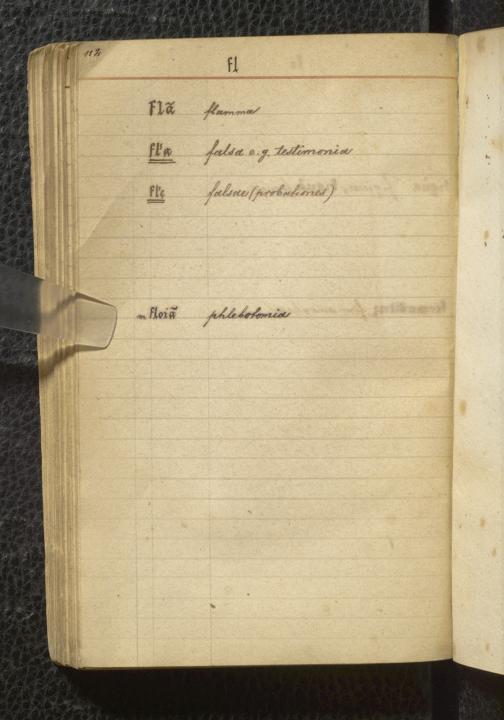 Fl
Flã flamma
fl'a falsa e.g. testimonia
fl'e falsae (probationes)
floiã phlebotomia